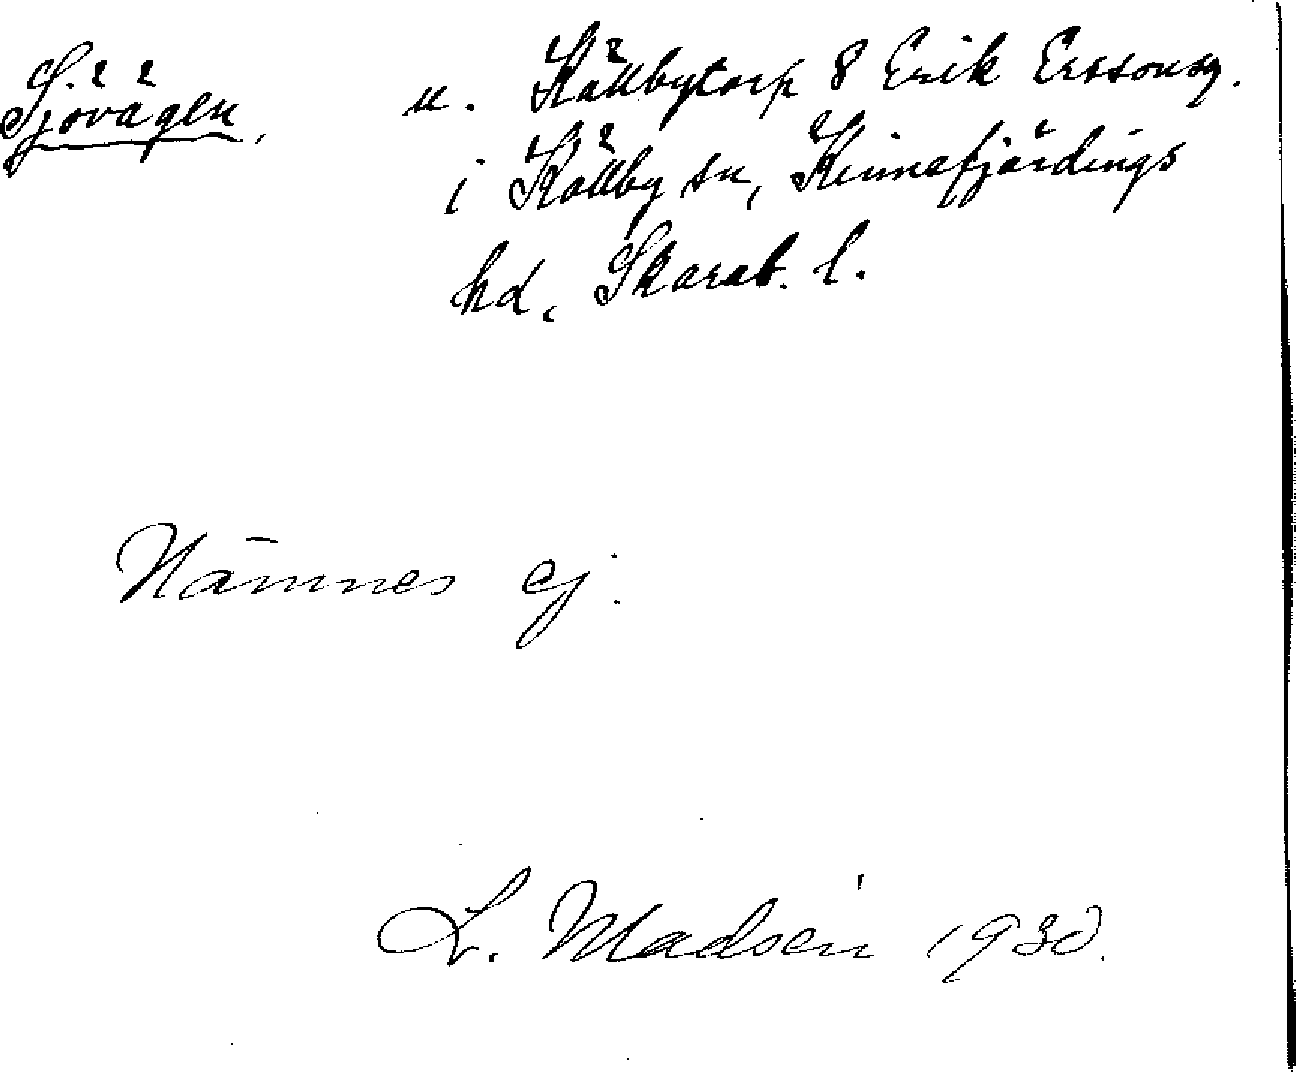 Sjövägen, u. Källbytorp 8 Erik Erssonsg.
i Källby sn, Kinnefjärdings
hd, Skarab. l.
Nämnes ej.
L. Madsén 1930.